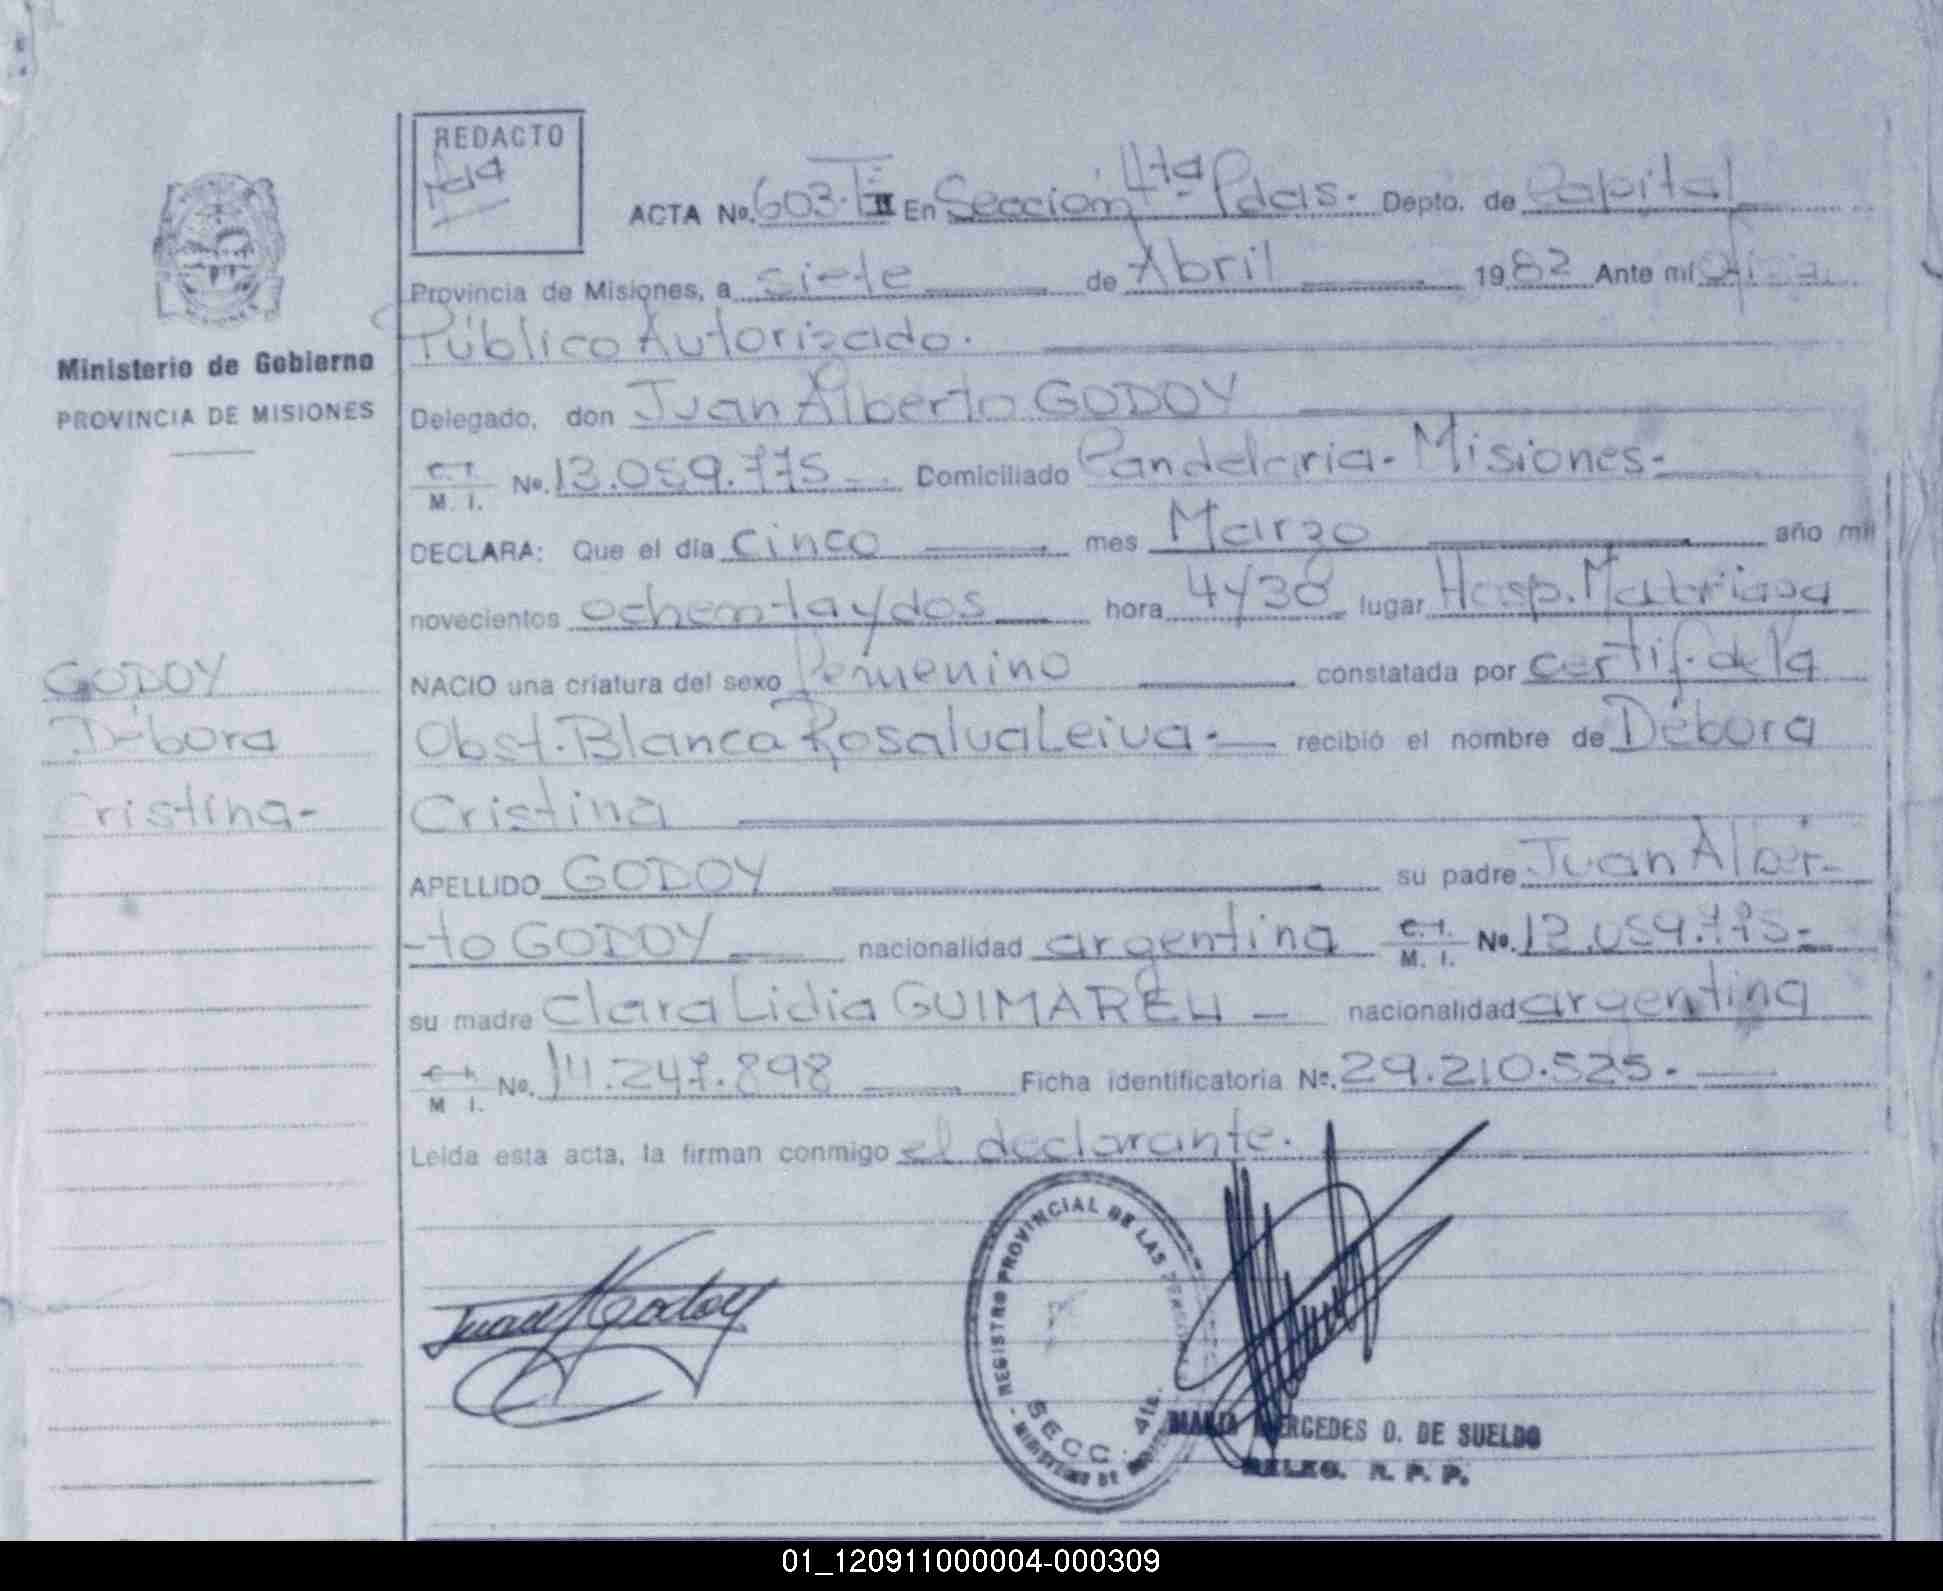 REDACTO
ACTA No. 603-T II En Sección 4ta Pdas. Depto. de Capital
Provincia de Misiones, a siete de Abril 1982 Ante mí
Público Autorizado.
Ministerio de Gobierno
PROVINCIA DE MISIONES
Delegado, don Juan Alberto GODOY
C.I. M. I. No. 13.059.775 Domiciliado Candelaria - Misiones -
DECLARA: Que el día cinco mes Marzo año mil
novecientos ochenta y dos hora 4 y 30 lugar Hosp.
NACIO una criatura del sexo Femenino constatada por certif. de la
Obst. Blanca Rosalva Leiva. recibió el nombre de Débora
Cristina
GODOY
Débora
Cristina-
APELLIDO GODOY su padre Juan Alber-
-to GODOY nacionalidad argentina C.I. M. I. No.
su madre Clara Lidia nacionalidad argentina
C.I. M I. No. 14.247.898 Ficha identificatoria No. 29.210.525.
Leída esta acta, la firman conmigo el declarante.
Juan A Godoy
REGISTRO PROVINCIAL DE LAS
SECC. 4ta.
MARIA MERCEDES D. DE SUELDO
DELEG. R. P. P.
01_120911000004-000309